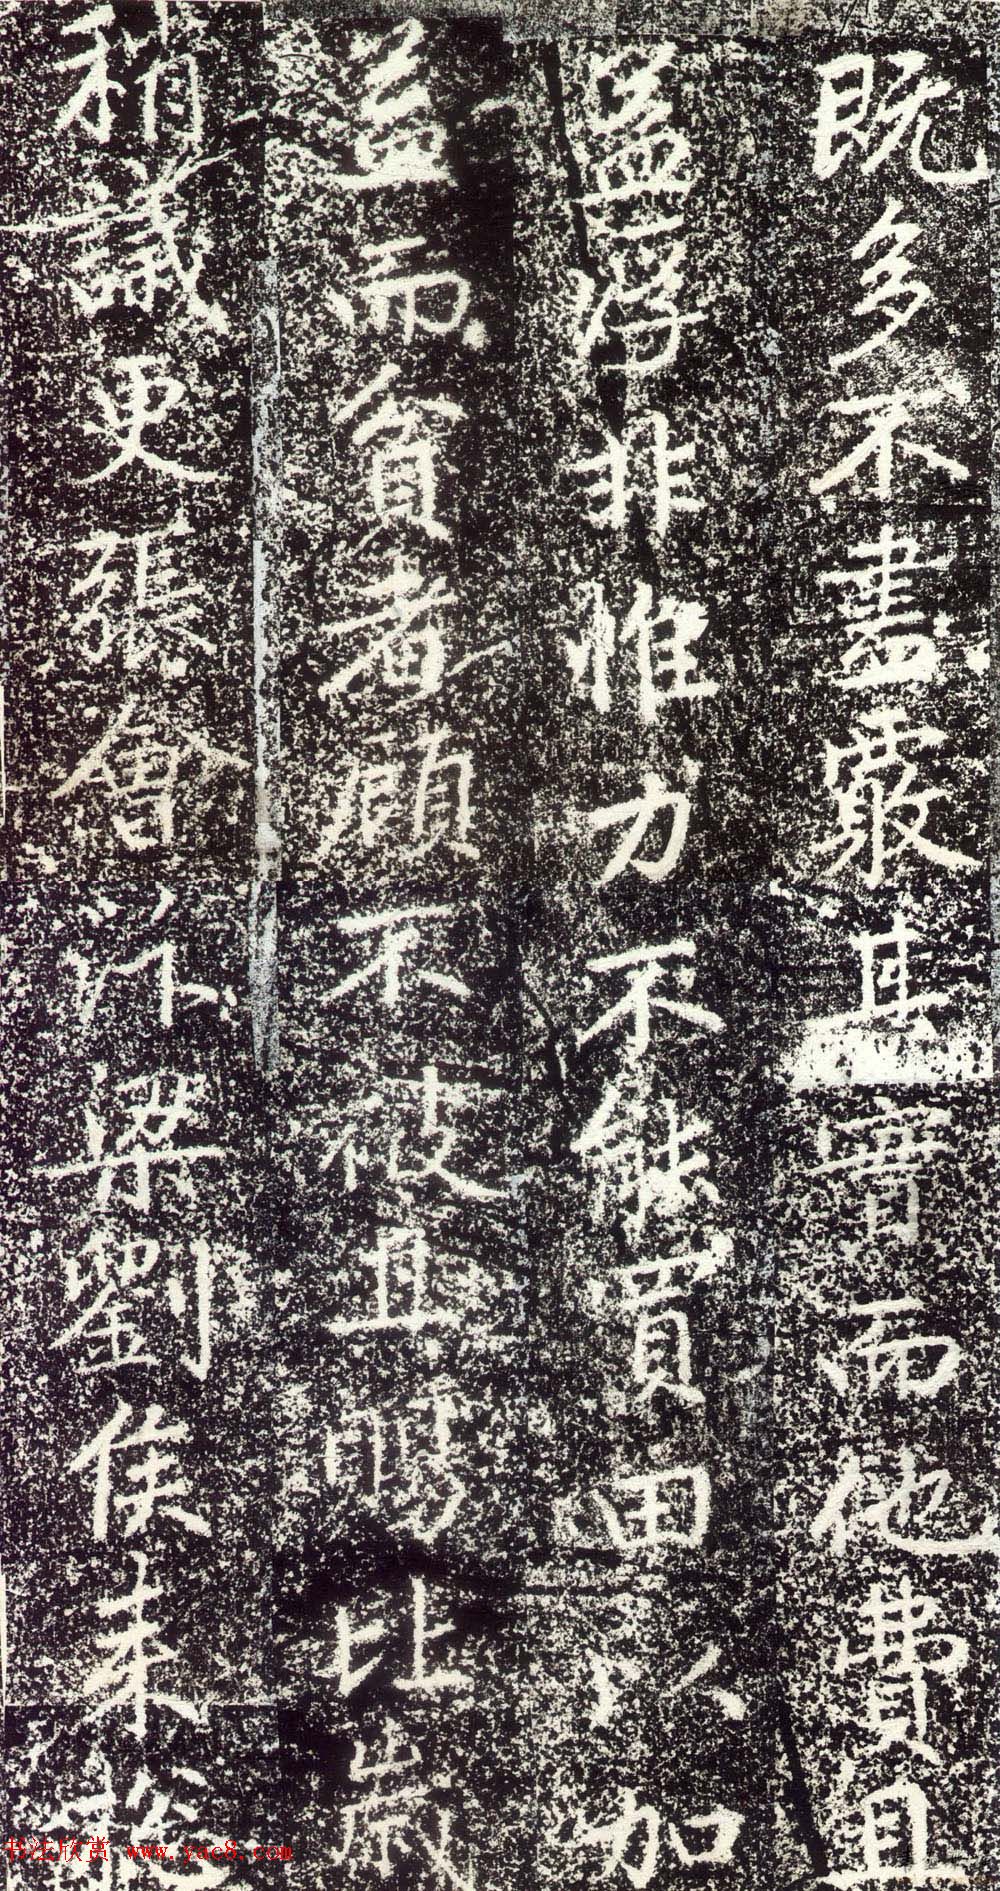 既多不盡覈其實而他費且
益浮非惟力不能買田以加
益而貧者顧不被且賜比歲
稍議更張會以梁劉侯来
书法欣赏 www.yac8.com